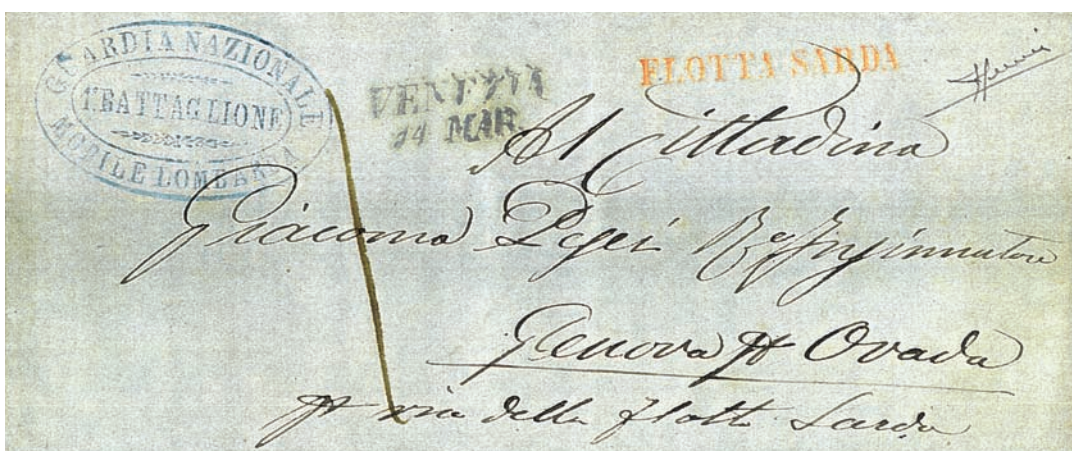 GUARDIA NAZIONALE
1º BATTAGLIONE
MOBILE LOMBARDA
VENEZIA
14 MAR.
FLOTTA SARDA
Al Cittadino
Giacomo
Genova pr Ovada
pr via della flotta Sarda